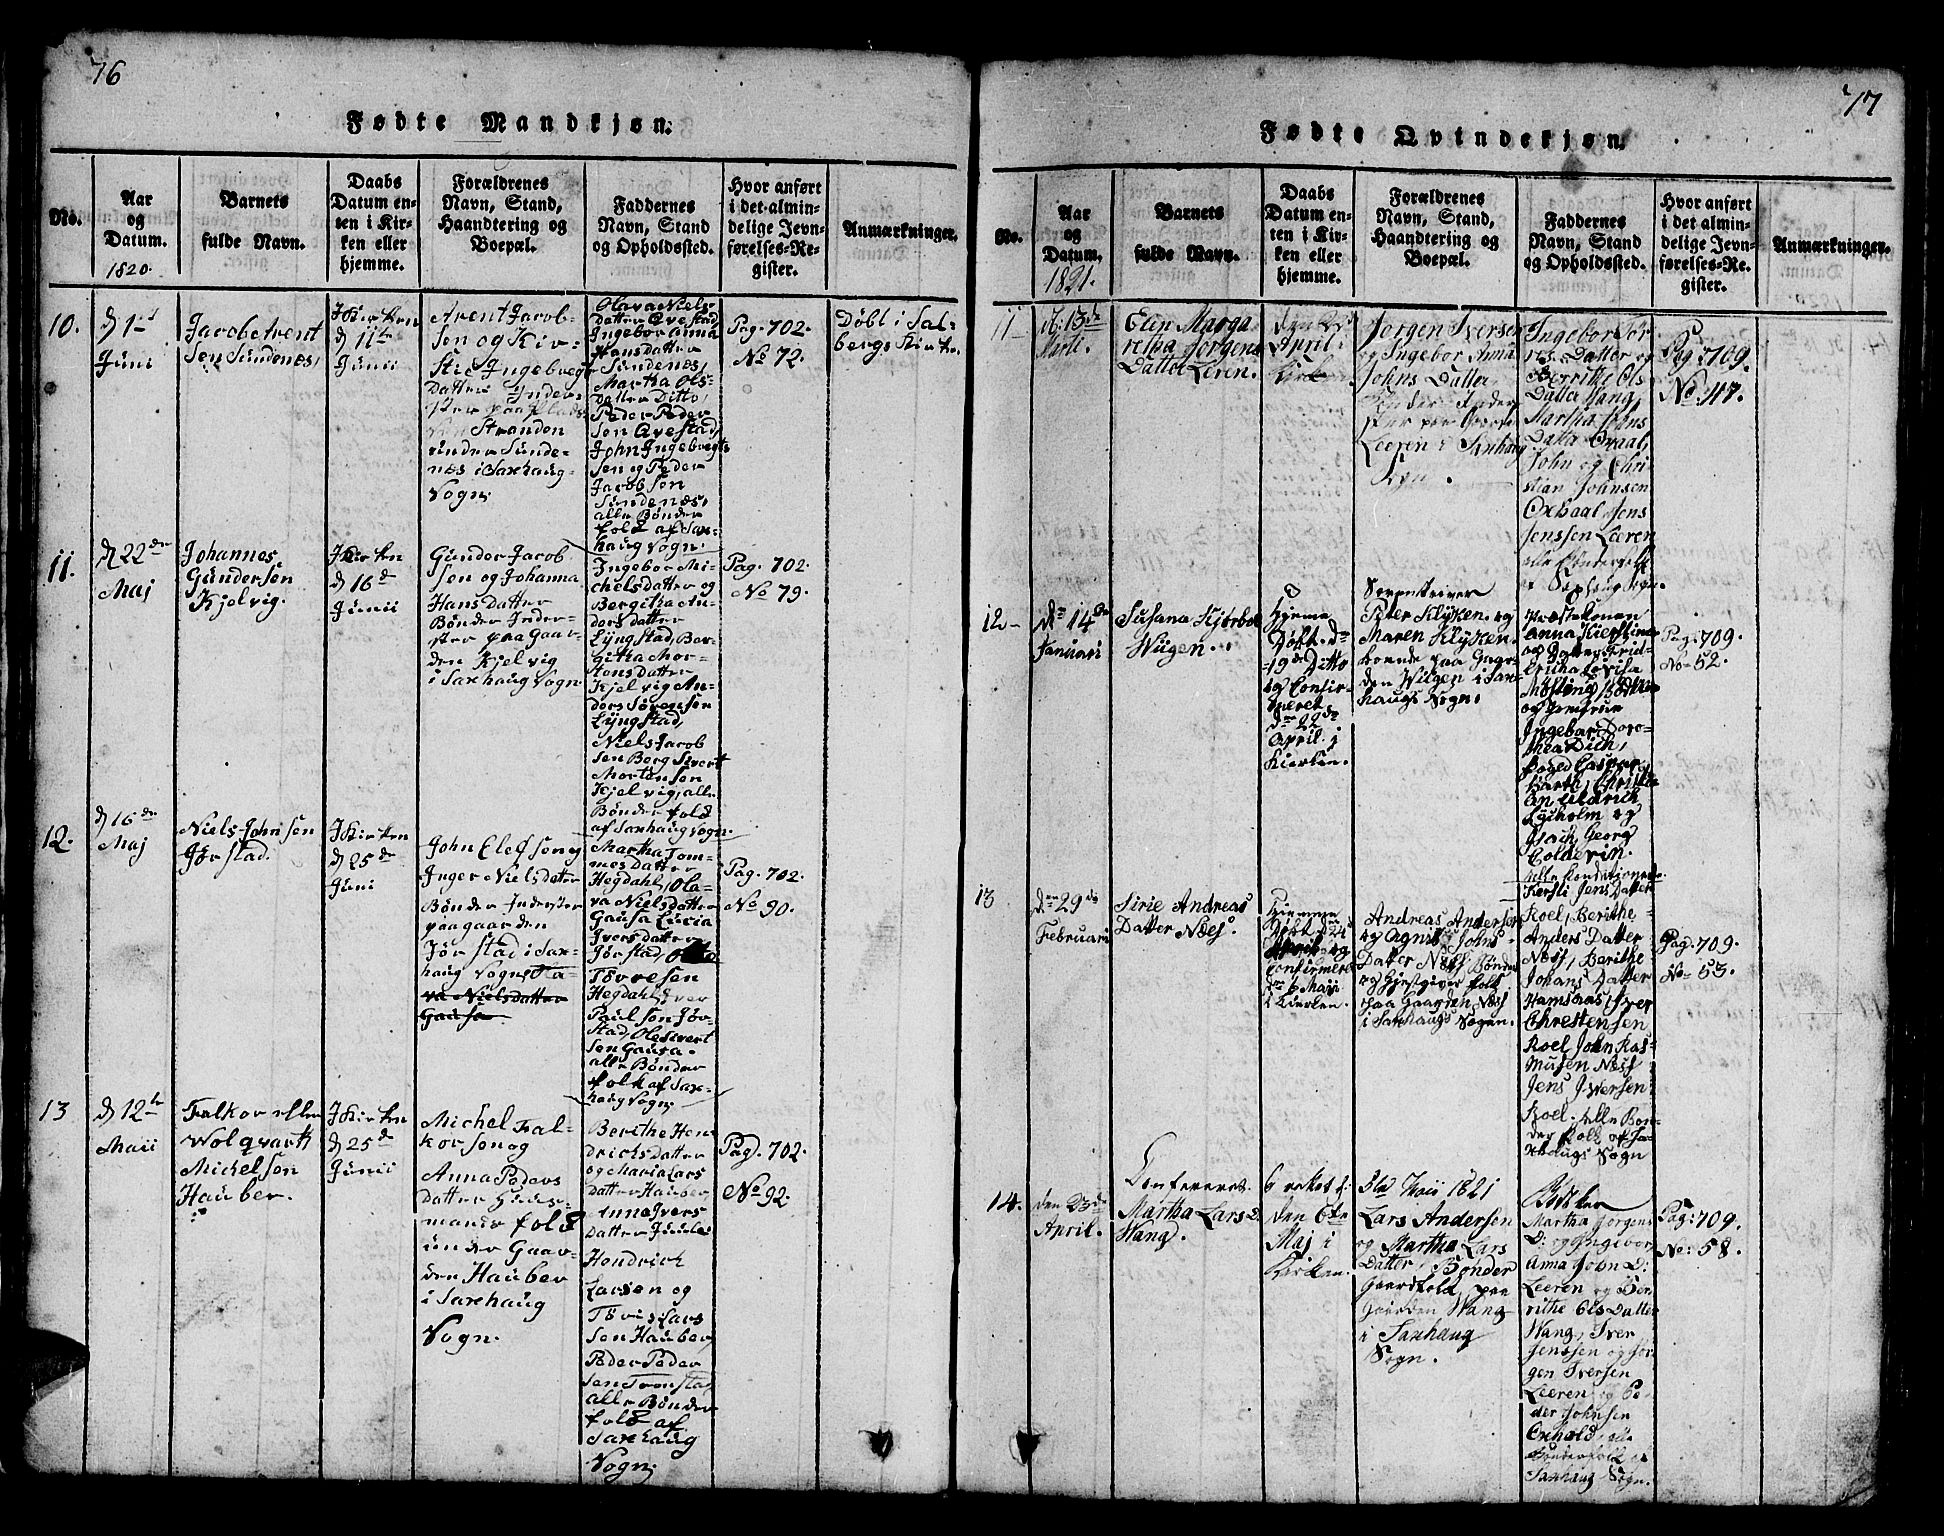 76
Fødte Mandkjøn.
No.
Aar
og
Datum.
1820.
Barnets
fulde Navn.
Daabs
Datum en-
ten i Kir-
ken eller
hjemme.
Forældrenes
Navn, Stand,
Haandtering og
Boepæl.
Faddernes
Navn, Stand
og Opholdssted.
Hvor anført
i det almin-
delige Jevn-
førelses-Re-
gister.
Anmærkninger.
10.
d 1st
Juni
Jacob Arent
Sen Sundenæs,
J Kirken
d 11te
Junii
Arent Jacob-
Sen og Kir-
stie Ingebregt
Datter Inder-
ster paa Plads
Stranden
under Sunde-
næs i Saxhaug
Sogn.
Olava Niels
Datter Qvestad
Ingebor Anna
Hansdatter
Sundenæs,
Martha Ols-
Datter Ditto,
Peder Peder
Sen Qvestad,
John Ingebregts
Sen og Peder
Jacob Sen
Sundenæs,
alle Bønder
folk af Sax-
haug Sogn.
Pag. 702.
No 72.
Døbt i Sal-
bergs Kirke.
11.
d 22de
Maj
Johannes
Gundersen
Kjelvig.
J Kirken
d 16d
Junii
Gunder Jacob
Sen og Johanna
Hans Datter
Bønder Inder-
ster paa Gaar-
den Kjelvig
i Saxhaug Sogn
Ingebor Mi-
chelsdatter og
Bergitha An-
dersdatter
Lyngstad, Ber-
githa Mor-
tensdatter
Kjelvig An-
ders Sørensen
Lyngstad,
Niels Jacob
Sen Borg Sivert
Morten Sen
Kjelvig, alle
Bønder folk
af Saxhaug Sogn.
Pag. 702.
No 79.
12.
d 16de
Maj
Niels John Sen
Jørstad.
J Kirken
d 25de
Juni
John Elef Sen og
Inger Nielsdatter
Bønder Inderster
paa gaarden
Jørstad i Sax-
haug Sogn, Ola-
va Nielsdatter
Gausa
Martha Tom-
mes Datter
Hegdahl, Ola-
va Nielsdatter
Gausa Lucia
Iversdatter
Jørstad,
Torresen
Hegdahl, Iver
Paul Sen Jør-
stad, Ole Sivert
Sen Gausa
alle Bønder
folk af Sax-
haug Sogn.
Pag. 702.
No 90.
13
d 12te
Maii
Falkor eller
Wolqvarth
Michelsen
Hauber.
J Kirken
d 25d
Junii
Michel Fal-
kor Sen og
Anna Peders
Datter Huus-
mands folk
under Gaar-
den Hauber
i Saxhaug
Sogn.
Berithe Hen
drichsdatter
og Maria Lars
Datter Hauber
Anna Ivers
Datter Juule
Hendrich
Larsen og
Tøris Lars
Sen Hauber,
Peder Peder
Sen Tronstad,
alle Bønder
folk af
Saxhaug
Sogn.
Pag. 702.
No 92.
77
Fødte Qvindekjøn.
No.
Aar
og
Datum.
1821.
Barnets
fulde Navn.
Daabs
Datum en-
ten i Kir-
ken eller
hjemme.
Forældrenes
Navn, Stand,
Haandtering og
Boepæl.
Faddernes
Navn, Stand
og Opholdssted.
Hvor anført
i det almin-
delige Jevn-
førelses-Re-
gister.
Anmærkninger.
11
d: 13de
Marti.
Elen Marga
retha Jørgens
Datter Leren.
April i
Kirken.
Jørgen Iversen
og Ingebor Anna
Johns Datter
Leeren i Saxhaug
Sogn.
Ingebor
Datter og
Berrithe Ols
Datter Wang,
Martha Johns
Datter Oxaal,
John og Chri-
stian Johnsen
Oxhaal, Jens
Jenssen Leeren
alle Bønderfolk
Sogn.
Pag: 709.
No: 47.
12
dn 14de
Januari
Susana Kjørboe
Wiigen.
Hjeme
Døbt dn
19de Ditto
og Confir-
meret
dn 22de
April i
Kierken.
Sorenskriver
Peter Klyken og
Maren Klyken.
boende paa Gaar-
den Wiigen i Sax-
haugs Sogn.
Præstekonen
Anna Kierstine
og Datter Frid-
ericha Lovisa
og Jomfrue
Ingebor Doro-
thea Dick,
Foged Casper
Barth,
Lycholm og
Isach Georg
Colderin.
alle Konditionerte
Pag: 709.
No 52.
13
dn 29de
Februari
Sirie Andreas
Datter Næss.
Hjemme
Døbt d 24
April og
Confirmeret
dn 6 Maii
i Kierken.
Andreas Andersen
og Agnis Johns
Datter Næss, Bønder
og Gjestgiver folk
paa Gaarden Næss
i Saxhaugs Sogen.
Kersti Jens Datter
Roel, Berithe
Anders Datter
Næss, Berithe
Johans Datter
Hamsnas, Iver
Chrestensen
Roel John Ras-
musen Næss
Jens Iversen
Roel. alle Bøn-
der folk af Sa-
xhaugs Sogn
Pag. 709.
No 53.
14.
den 23de
April.
Confereret
Martha Lars D.
Wang.
den 6te
Maj i
Kirken.
31d Maii 1821
Lars Andersen
og Martha Lars
Datter, Bønder
Gaardfolk paa
Gaarden Wang
i Saxhaug
Sogn.
Martha Jørgens
D: og Ingebor
Anna John D:
Leeren og Ber-
rithe Ols Datter
Wang, Iver
Jenssen og Jør-
gen Iversen
Leeren og Pe-
der Johnsen
Oxhald, alle
Bønderfolk
Saxhaug Sogn.
Pag: 709.
No: 58.